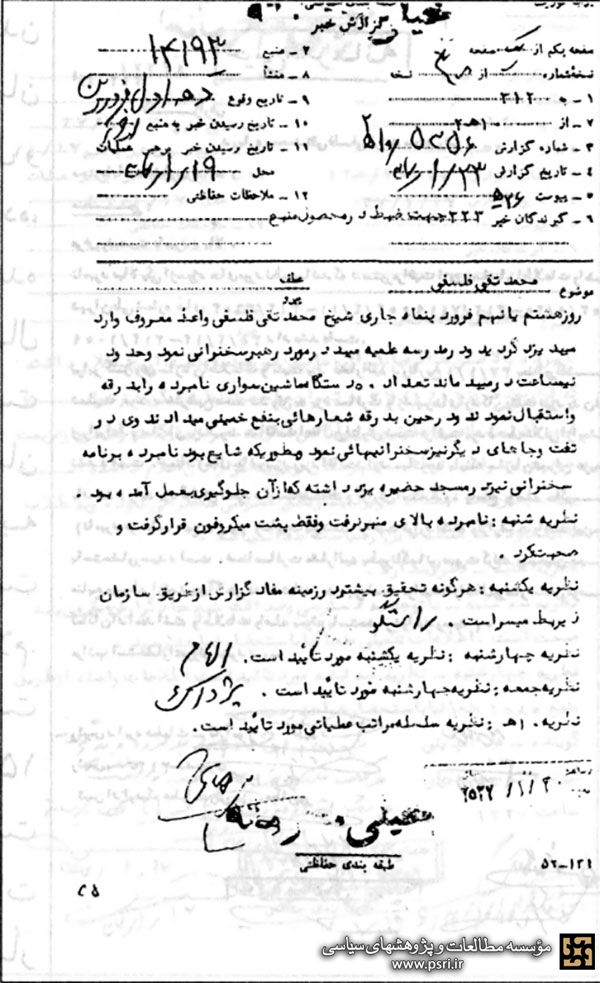 خیلی محرمانه
گزارش خبر
صفحه یکم از یک صفحه
نسخه شماره از نسخه
۱ - به ۳۱۲
۲ - از ۱۰هـ۲
۳ - شماره گزارش
۴ - تاریخ گزارش
۵ - پیوست
۶ - گیرندگان خبر ۳۲۳ جهت ضبط در محصول منبع
۷ - منبع ۱۴۱۹۳
۸ - منشأ
۹ - تاریخ وقوع دهه اول فروردین
۱۰ - تاریخ رسیدن خبر به منبع
۱۱ - تاریخ رسیدن خبر برهبر عملیات
محل
۱۲ - ملاحظات حفاظتی
موضوع محمد تقی فلسفی عطف
پیرو
روز هشتم یا نهم فروردینماه جاری شیخ محمد تقی فلسفی واعظ معروف وارد
میبد یزد گردیده و در مدرسه علمیه میبد در مورد رهبر سخنرانی نمود و حدود
نیمساعت در میبد ماند تعداد ۵۰ دستگاه ماشین سواری نامبرده را بدرقه
و استقبال نمودند و در حین بدرقه شعارهائی بنفع خمینی میدادند وی در
تفت و جاهای دیگر نیز سخنرانیهائی نمود و بطوریکه شایع بود نامبرده برنامه
سخنرانی نیز در مسجد حضیره یزد داشته که از آن جلوگیری بعمل آمده بود .
نظریه شنبه : نامبرده بالای منبر نرفت و فقط پشت میکروفون قرار گرفت و
صحبت کرد .
نظریه یکشنبه : هر گونه تحقیق بیشتر در زمینه مفاد گزارش از طریق سازمان
ذیربط میسر است .
نظریه چهارشنبه : نظریه یکشنبه مورد تأیید است . الهام
نظریه جمعه : نظریه چهارشنبه مورد تأیید است .
نظریه ۱۰هـ : نظریه سلسله مراتب عملیاتی مورد تأیید است .
۲۵۳۷/۱/۲۰
خیلی محرمانه
طبقه بندی حفاظتی
۵۲-۱۲۱
۲۵
مؤسسه مطالعات و پژوهشهای سیاسی
www.psri.ir